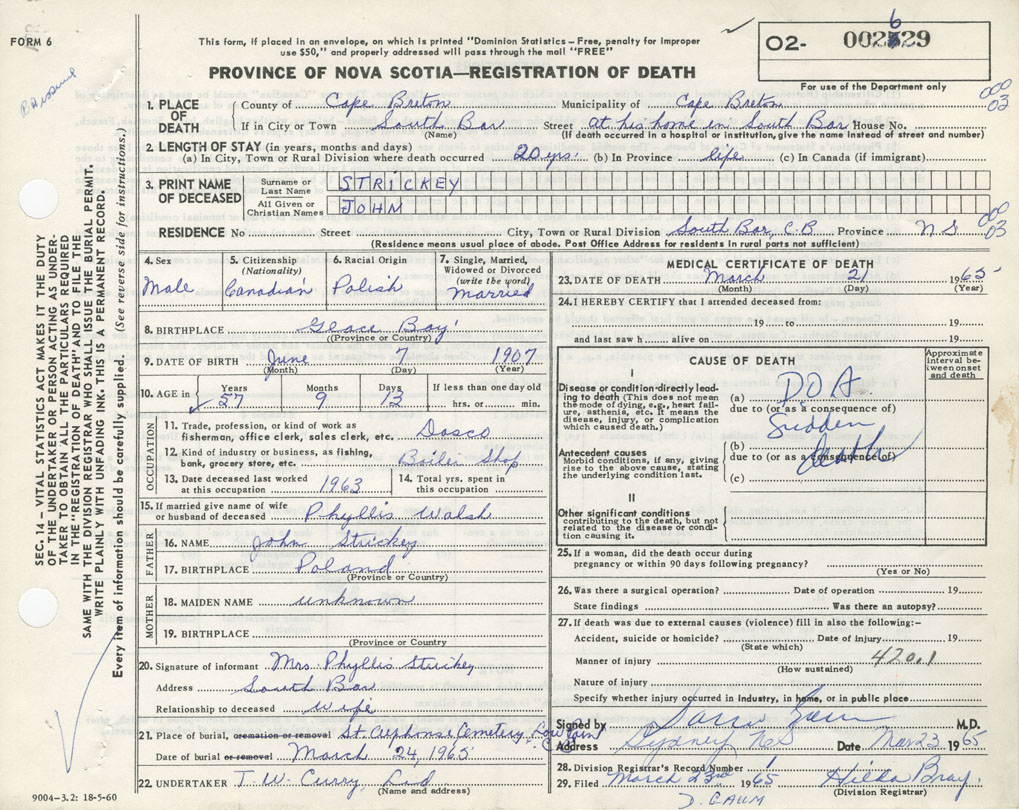 FORM 6
This form, if placed in an envelope, on which is printed "Dominion Statistics - Free, penalty for improper
use $50," and properly addressed will pass through the mail "FREE"
PROVINCE OF NOVA SCOTIA—REGISTRATION OF DEATH
O2- 002629
For use of the Department only
1. PLACE OF DEATH
County of Cape Breton Municipality of Cape Breton
If in City or Town South Bar Street at his home in South Bar House No.
(Name) (If death occurred in a hospital or institution, give the name instead of street and number)
000 03
2. LENGTH OF STAY (in years, months and days)
(a) In City, Town or Rural Division where death occurred 20 yrs. (b) In Province life (c) In Canada (if immigrant)
3. PRINT NAME OF DECEASED
Surname or Last Name STRICKEY
All Given or Christian Names JOHN
RESIDENCE No Street City, Town or Rural Division South Bar, C.B Province N S
000 03
(Residence means usual place of abode. Post Office Address for residents in rural parts not sufficient)
4. Sex Male
5. Citizenship (Nationality) Canadian
6. Racial Origin Polish
7. Single, Married, Widowed or Divorced (write the word) Married
8. BIRTHPLACE Glace Bay
(Province or Country)
9. DATE OF BIRTH June 7 1907
(Month) (Day) (Year)
10. AGE in Years 57 Months 9 Days 13 If less than one day old hrs. or min.
OCCUPATION
11. Trade, profession, or kind of work as fisherman, office clerk, sales clerk, etc. Dosco
12. Kind of industry or business, as fishing, bank, grocery store, etc. Boiler Shop
13. Date deceased last worked at this occupation 1963
14. Total yrs. spent in this occupation
15. If married give name of wife or husband of deceased Phyllis Walsh
FATHER
16. NAME John Strickey
17. BIRTHPLACE Poland
(Province or Country)
MOTHER
18. MAIDEN NAME unknown
19. BIRTHPLACE
(Province or Country)
20. Signature of informant Mrs. Phyllis Strickey
Address South Bar
Relationship to deceased wife
21. Place of burial, cremation or removal St. Cemetery,
Date of burial or removal March 24, 1965
22. UNDERTAKER T. W. Curry Ltd
(Name and address)
9004-3.2: 18-5-60
MEDICAL CERTIFICATE OF DEATH
23. DATE OF DEATH March 21 1965
(Month) (Day) (Year)
24. I HEREBY CERTIFY that I attended deceased from:
19 to 19
and last saw h alive on 19
CAUSE OF DEATH
Approximate interval between onset and death
I
Disease or condition directly leading to death (This does not mean the mode of dying, e.g., heart failure, asthenia, etc. It means the disease, injury, or complication which caused death.)
(a) DOA
due to (or as a consequence of
Sudden
Antecedent causes
Morbid conditions, if any, giving rise to the above cause, stating the underlying condition last.
(b) death
due to (or as a consequence of)
(c)
II
Other significant conditions
contributing to the death, but not related to the disease or condition causing it.
25. If a woman, did the death occur during
pregnancy or within 90 days following pregnancy?
(Yes or No)
26. Was there a surgical operation? Date of operation 19
State findings Was there an autopsy?
27. If death was due to external causes (violence) fill in also the following:-
Accident, suicide or homicide? Date of injury 19
(State which)
Manner of injury 420.1
(How sustained)
Nature of injury
Specify whether injury occurred in industry, in home, or in public place
Signed by M.D.
Address Sydney NS Date Mar 23 1965
28. Division Registrar's Record Number 1
29. Filed March 23rd 1965 Hilda Bray
(Division Registrar)
D. GAUM
SEC. 14 - VITAL STATISTICS ACT MAKES IT THE DUTY
OF THE UNDERTAKER OR PERSON ACTING AS UNDER-
TAKER TO OBTAIN ALL THE PARTICULARS REQUIRED
IN THE "REGISTRATION OF DEATH" AND TO FILE THE
SAME WITH THE DIVISION REGISTRAR WHO SHALL ISSUE THE BURIAL PERMIT.
WRITE PLAINLY WITH UNFADING INK. THIS IS A PERMANENT RECORD.
Every item of information should be carefully supplied. (See reverse side for instructions.)